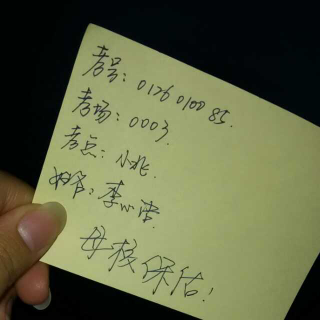 考号：0126010085.
考场：0003.
考点：小北.
姓名：李小洁.
母校保佑！